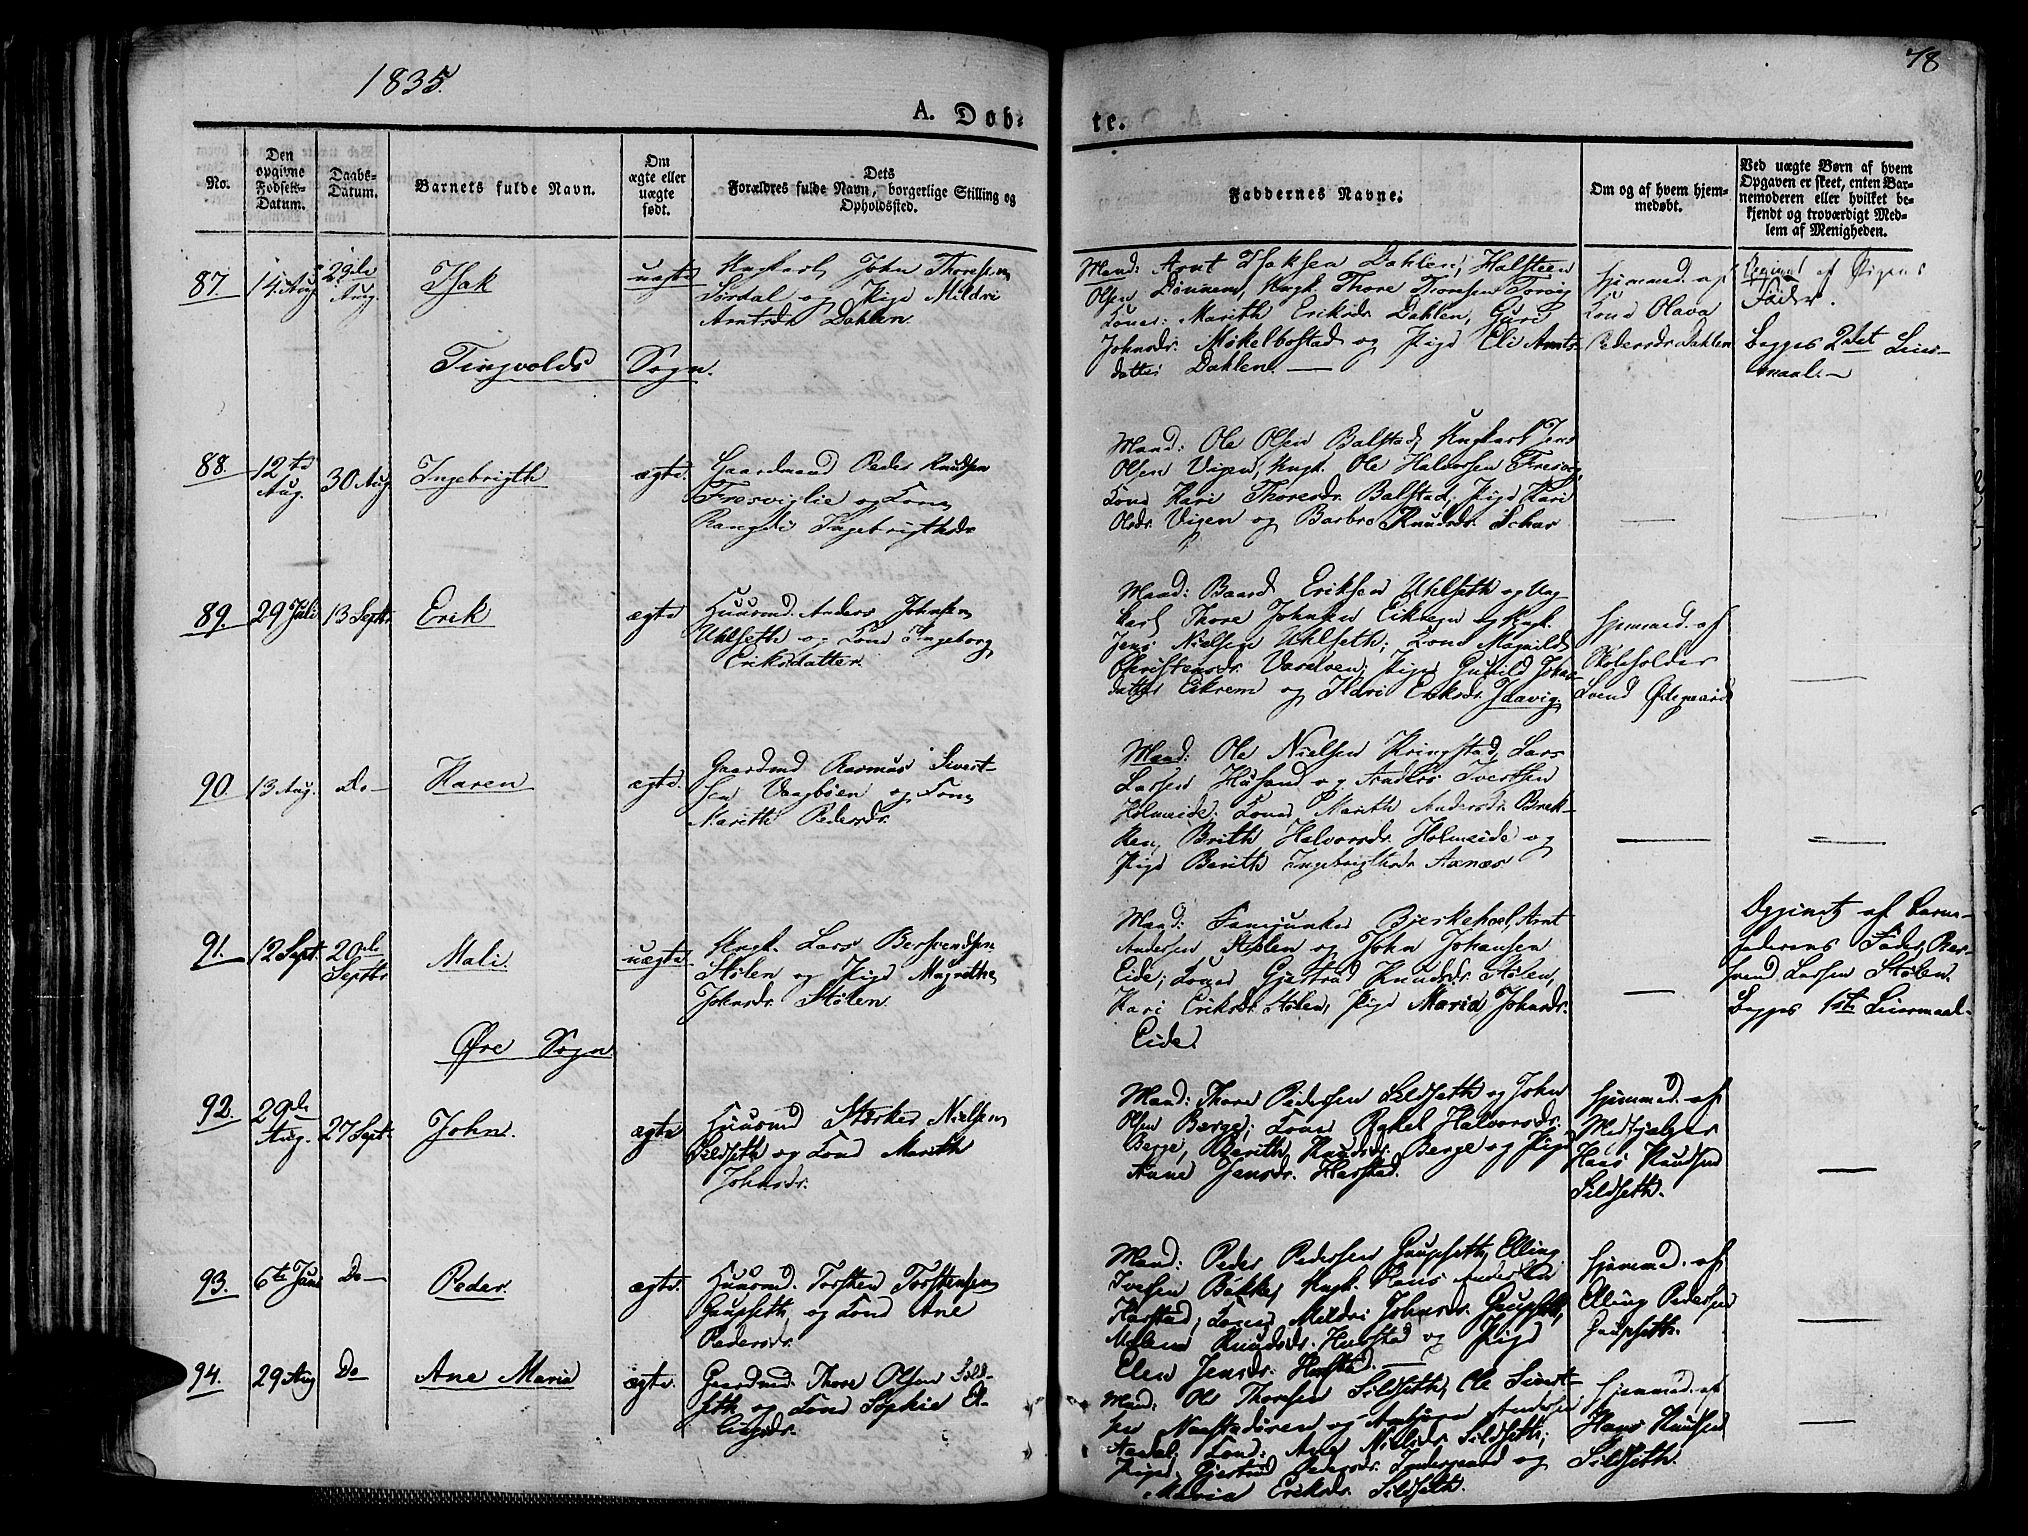 1835.
78
A. Døb-
te.
No.
Den
opgivne
Fødsels-
Datum.
Daabs-
Datum.
Barnets fulde Navn.
Om
ægte eller
uægte
født.
Dets
Forældres fulde Navn, borgerlige Stilling og
Opholdssted.
Faddernes Navne.
Om og af hvem hjem-
medøbt.
Ved uægte Børn af hvem
Opgaven er skeet, enten Bar-
nemoderen eller hvilket be-
kjendt og troværdigt Med-
lem af Menigheden.
87.
14 Aug
29de
Aug.
Isak
uægte
Ungkarl John Thoresen
Sirdal og Pige Mildri
Arntsdr Dahlen.
Mænd: Arnt Isaksen Dahlen, Halsteen
Olsen Dønnem, Ungk. Thore Thoresen Torvig
Koner: Marith Eriksdr. Dahlen, Guri
Johnsdr. Møkelbostad og Pige Eli Arnts-
datter Dahlen. —
Hjemmed. af
Kone Olava
Pedersdr Dahlen
af Pigens
Fader.
Begges 2det Leier-
maal. —
Tingvolds Sogn.
88.
12te
Aug.
30 Aug
Ingebrigth
ægte.
Gaardmand Peder Knudsen
Fresviglie og Kone
Rangdi Ingebrigthsdr
Mænd: Ole Olsen Balstad, Ungkarl Jens
Olsen Vigen, Ungk. Ole Halvorsen Fresvig,
Kone Kari Thoresdr. Balstad, Pige Kari
Olsdr. Vigen og Barbro Knudsdr Schar
—
—
89.
29 Juli
13 Septbr
Erik
ægte
Huusmd. Anders Johnsen
Uhlseth og Kone Ingeborg
Eriksdatter.
Mænd: Baard Eriksen Uhlseth og Ung-
karl Thore Johnsen Eikrem og Ungk.
Jens Nielsen Uhlseth; Kone Magnild
Christensdr. Pige Gunild Johns-
datter Eikrem og Ildri Eriksdr.
Hjemmed. af
Skoleholder
Svend Ødegaard
—
90.
13 Aug.
Do —
Karen
ægte.
Gaardmd Rasmus Sivert-
sen Vaagbøen og Kone
Marith Pedersdr.
Mænd: Ole Nielsen Kringstad, Lars
Larsen Husand og Anders Iversen
Holmeide; Koner Marith Andersdr. Brek-
ken, Brith Halvorsdr. Holmeide og
Pige Berith Ingebrigtsdr Axnæs
—
—
91.
12 Sept.
20de
Septbr
Mali.
uægte
Ungk. Lars Bersvendsen
Stølen og Pige Magrethe
Johnsdr Stølen.
Mænd: Fanejunker Bjerkehoel, Arnt
Andersen Stølen og John Johansen
Eide; Koner Gjertrud Knudsdr. Stølen,
Kari Eriksdr. Stølen; Pige Maria Johnsdr.
Eide.
—
Opgivet af Barne-
faderens Fader, Ber-
svend Larsen Stølen.
Begges 1ste Leiermaal.
Øre Sogn.
92.
29de
Aug.
27 Sept.
John.
ægte
Huusmd Størker Nielsen
Sildseth og Kone Marith
Johnsdr.
Mænd: Thore Pedersen Sildseth og John
Olsen Berge; Koner Rakel Halvorsdr.
Berge, Berith Knudsdr. Berge og Pige
Anne Jensdr. Harstad.
Hjemmed. af
Medhjelper
Hans Knudsen
Sildseth.
—
93.
6te Juni
Do —
Peder.
ægte.
Huusmd. Torsten Torstensen
Gaupseth og Kone Ane
Pedersdr.
Mænd: Peder Pedersen Gaupseth, Elling
Iversen Bakke, Ungk. Hans Andersen
Harstad; Koner Mildri Johnsdr. Gaupseth,
Malene Knudsdr. Harstad og Pige
Elen Jensdr. Harstad.
Hjemmed. af
Elling Pedersen
Gaupseth.
—
94.
29 Aug
Do —
Ane Maria
ægte.
Gaardmd. Thore Olsen Sild-
seth og Kone Sophie El-
lingsdr.
Mænd: Ole Thoresen Sildseth, Ole Sivert-
sen og Andersen
Aandal, Kone: Ane Nielsdr Sildseth;
Piger Gjertrud Pedersdr. Indergaard og
Maria Eriksdr. Sildseth.
Hjemmed. af
Hans Knudsen
Sildseth.
—